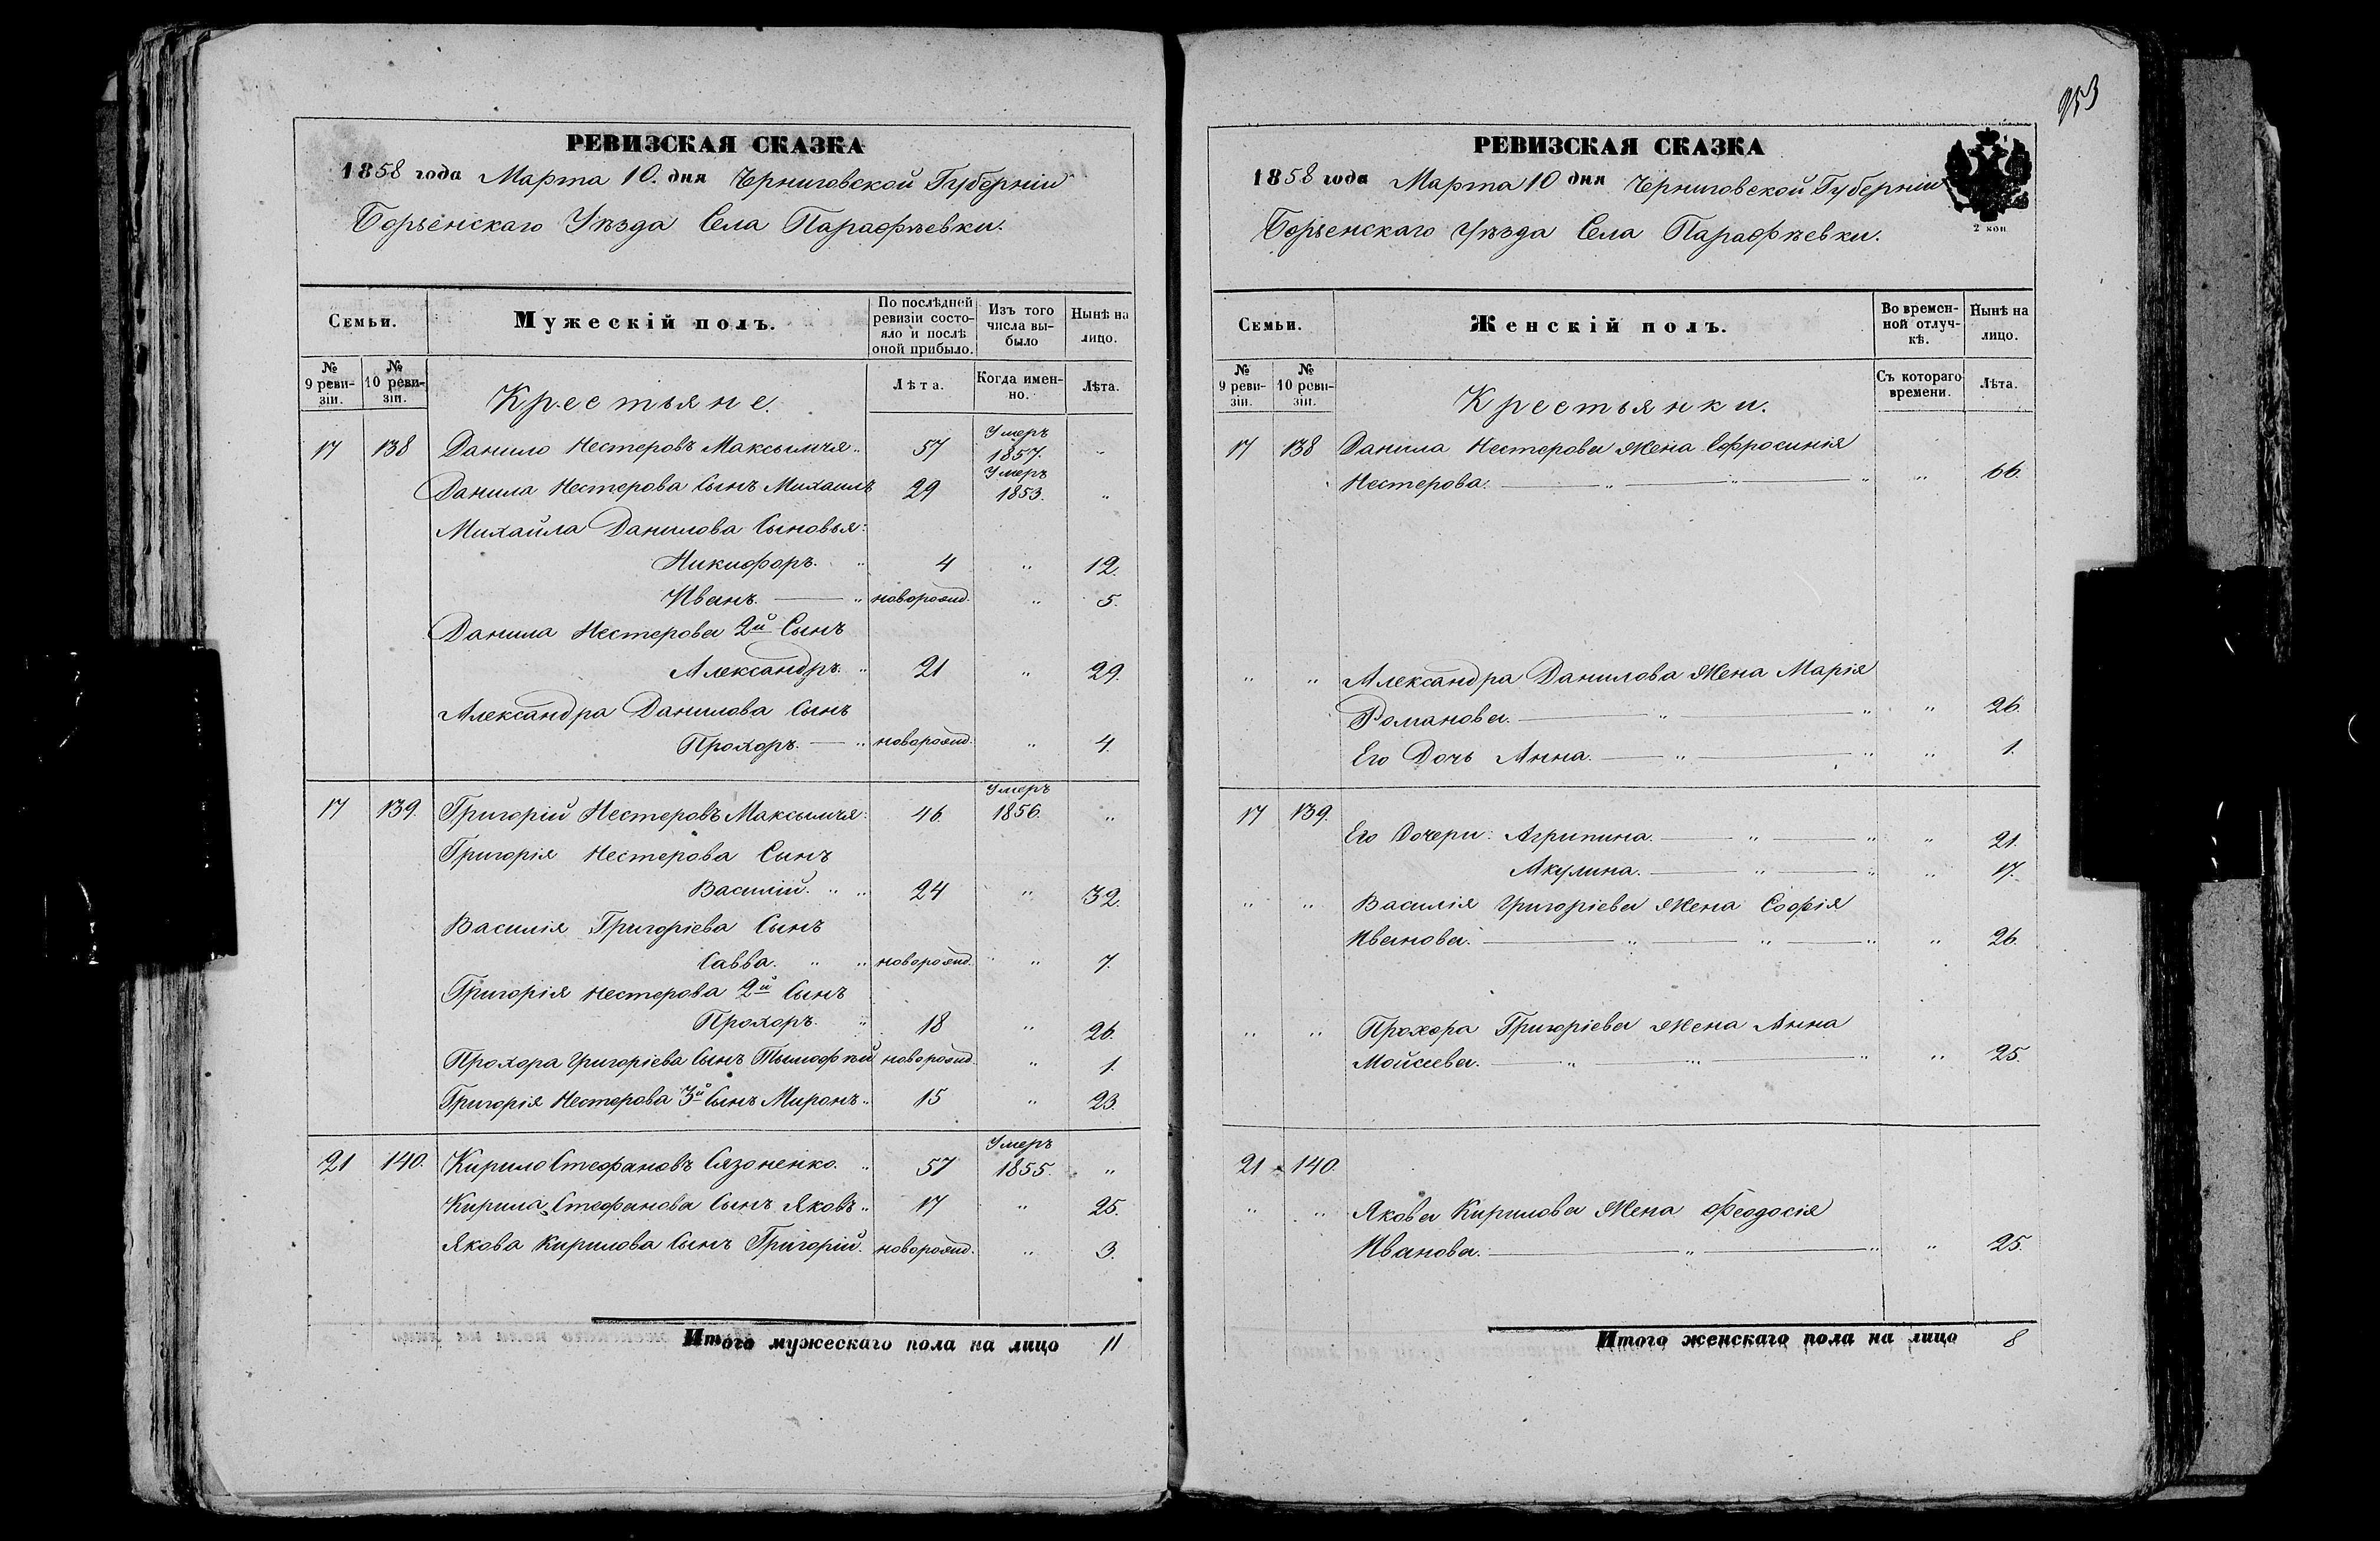 РЕВИЗСКАЯ СКАЗКА
1858 года Марта 10. дня Черниговской Губерніи
Борзенскаго Уѣзда Села Парафѣевки.
Семьи. Мужескій полъ. По послѣдней ревизіи состояло и послѣ оной прибыло. Изъ того числа выбыло Нынѣ на лицо.
№ 9 ревизіи. № 10 ревизіи. Крестьяне. Лѣта. Когда именно. Лѣта.
17 138 Данило Нестеровъ Максымчя „ 57 Умеръ 1857. „
Данила Нестерова Сынъ Михаилъ 29 Умеръ 1853. „
Михайла Данилова Сыновья:
Никифоръ. „ 4 „ 12.
Иванъ. — „ новорожд. „ 5.
Данила Нестерова 2й Сынъ
Александръ. „ 21 „ 29.
Александра Данилова Сынъ
Прохоръ. — „ новорожд. „ 4.
17 139. Григорій Нестеровъ Максымчя: 46. Умеръ 1856. „
Григорія Нестерова Сынъ
Василій. „ „ 24 „ 32.
Василія Григоріева Сынъ
Савва. „ „ новорожд. „ 7.
Григорія Нестерова 2й Сынъ
Прохоръ. „ 18 „ 26.
Прохора Григоріева Сынъ Тымофѣй новорожд. „ 1.
Григорія Нестерова 3й Сынъ Миронъ „ 15 „ 23.
21 140. Кирило Стефановъ Сязоненко. „ 57 Умеръ 1855. „
Кирила Стефанова Сынъ Яковъ „ 17 „ 25.
Якова Кирилова Сынъ Григорій. новорожд. „ 3.
Итого мужескаго пола на лицо 11
253
РЕВИЗСКАЯ СКАЗКА
1858 года Марта 10 дня Черниговской Губерніи
Борзенскаго Уѣзда Села Парафѣевки.
2 коп
Семьи. Женскій полъ. Во временной отлучкѣ. Нынѣ на лицо.
№ 9 ревизіи. № 10 ревизіи. Крестьянки. Съ котораго времени. Лѣта.
17 138 Данила Нестерова Жена Ефросинія
Нестерова. — „ — „ — „ „ 66.
„ „ Александра Данилова Жена Марія
Романова. — „ — „ „ 26.
Его Дочь Анна. — „ — „ „ 1.
17 139.
Его Дочери: Агрипина. — „ — „ „ 21.
Акулина. — „ — „ „ 17.
„ „ Василія Григоріева Жена Софія
Иванова. — „ — „ — „ „ 26.
„ „ Прохора Григоріева Жена Анна
Мойсеева. — „ — „ — „ „ 25.
21 140.
„ „ Якова Кирилова Жена Феодосія
Иванова. — „ — „ „ 25.
Итого женскаго пола на лицо 8